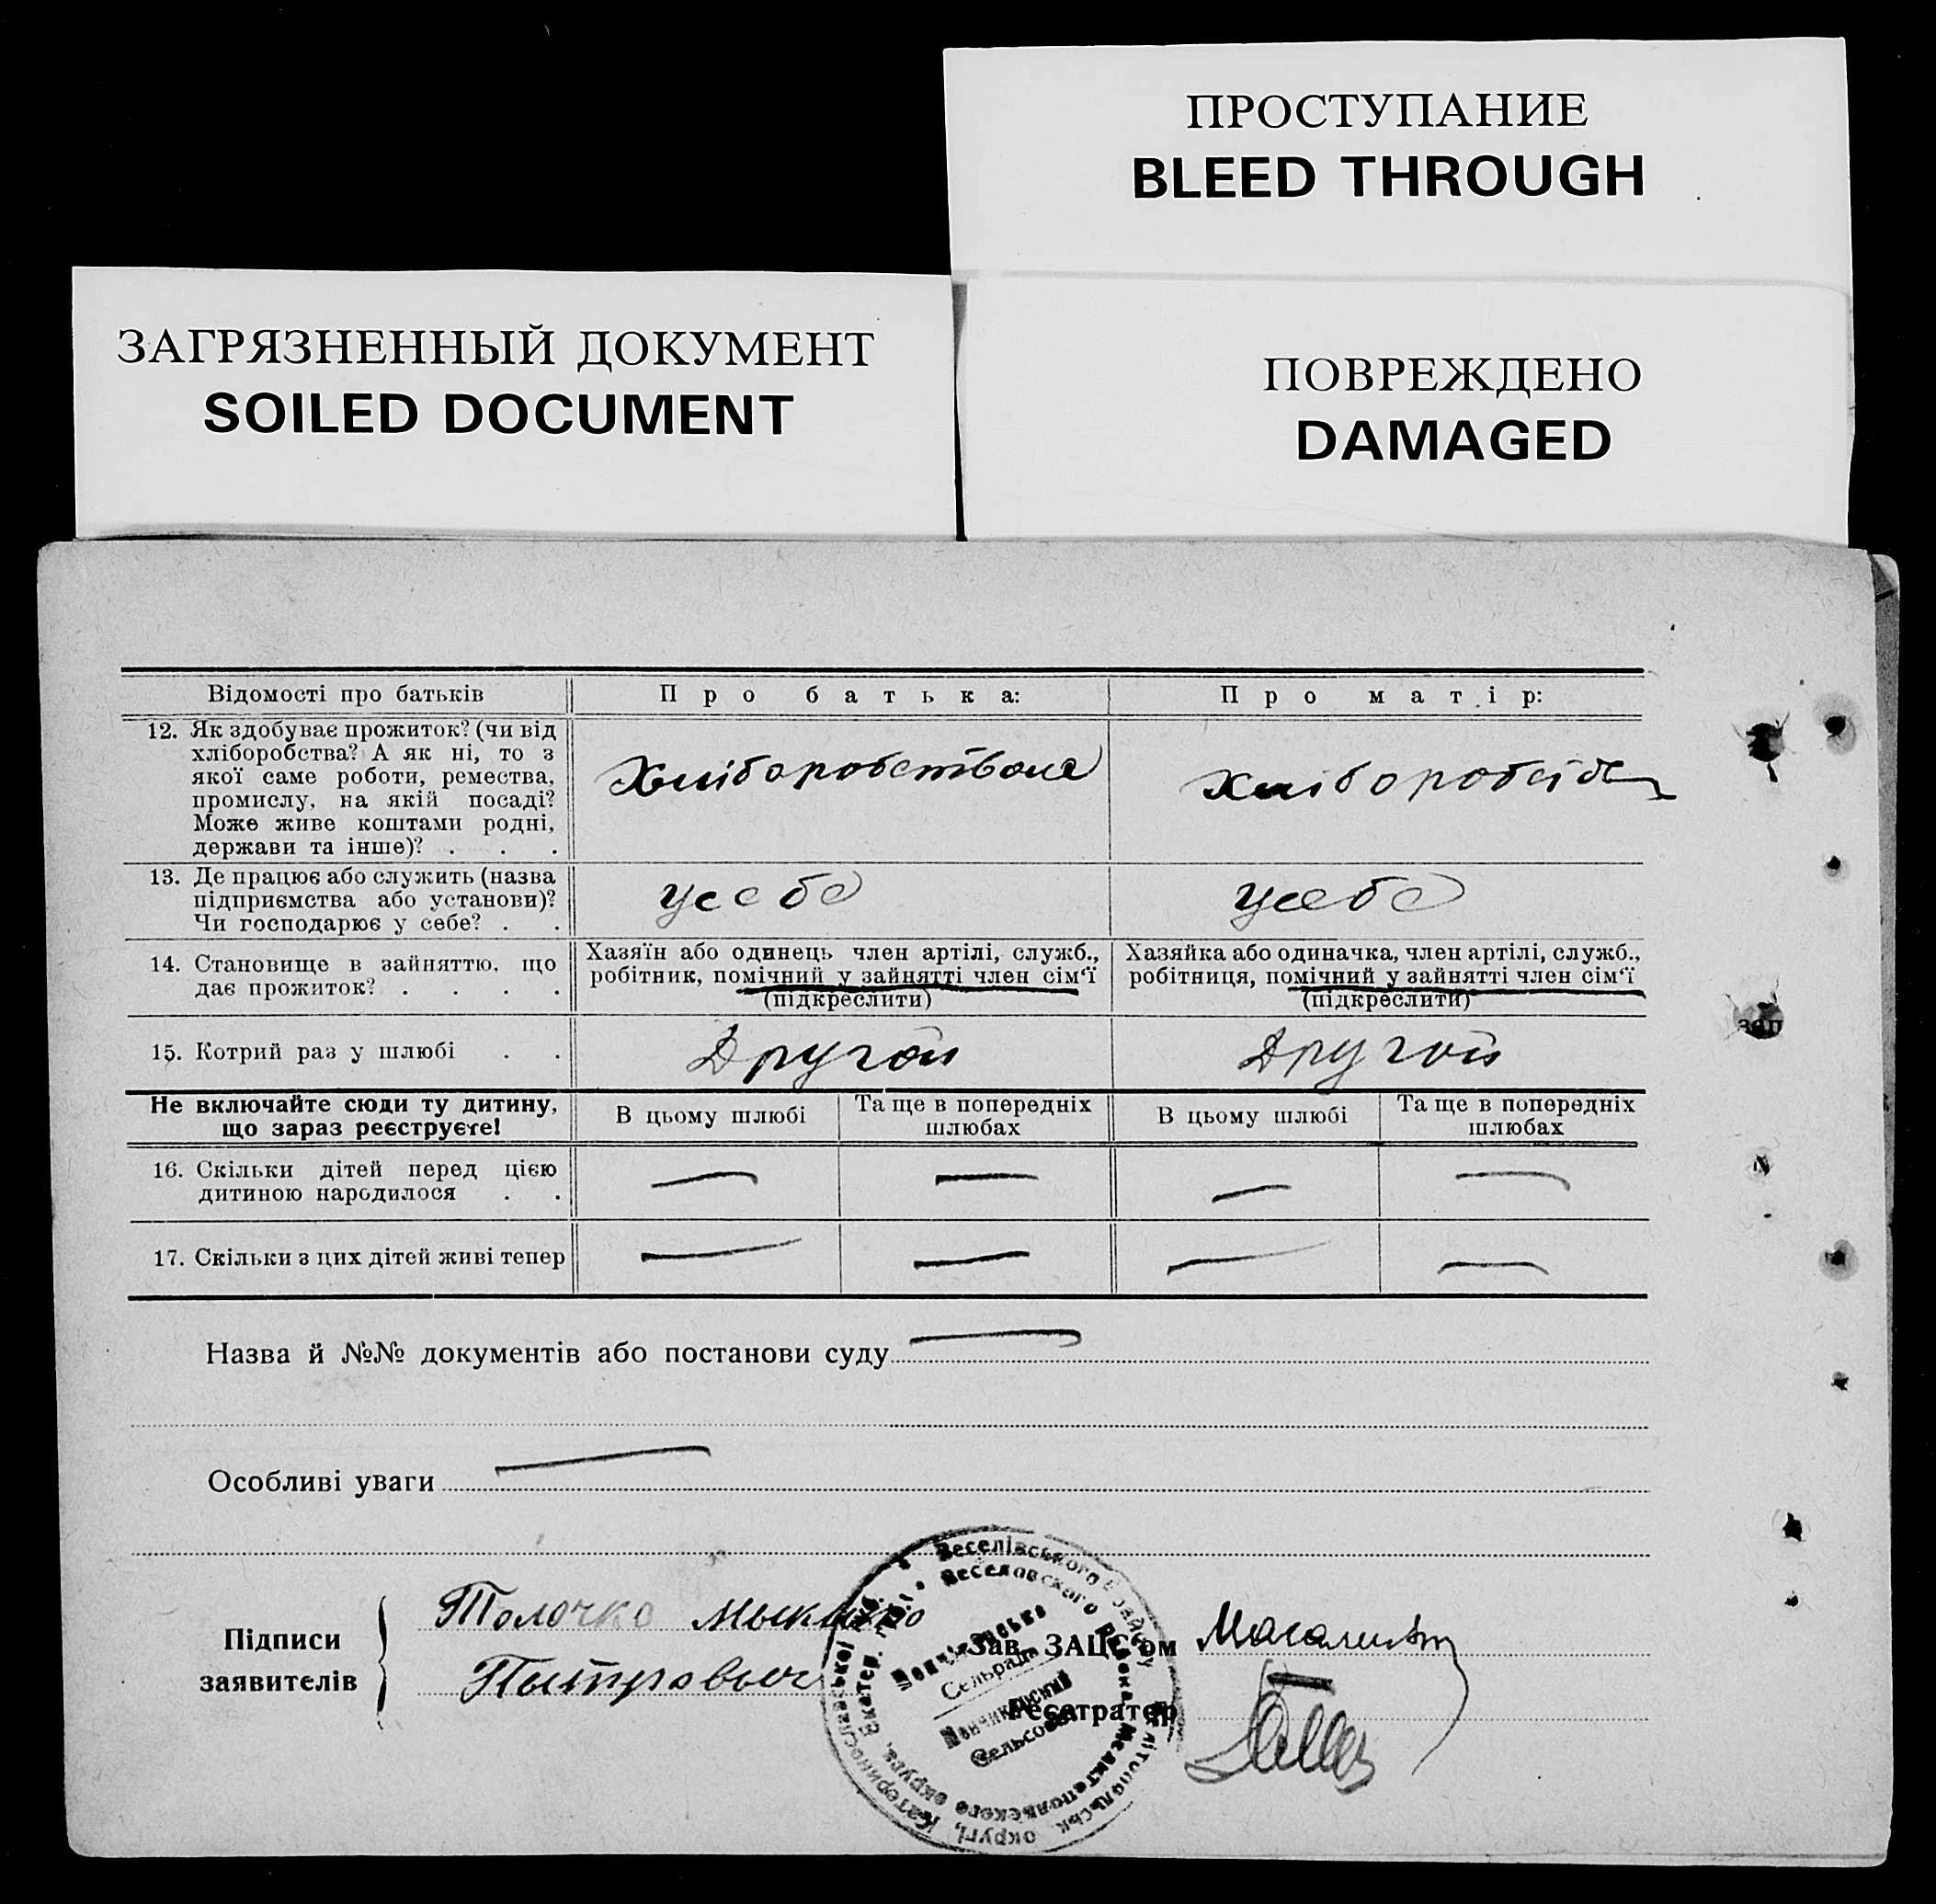 ПРОСТУПАНИЕ
BLEED THROUGH
ЗАГРЯЗНЕННЫЙ ДОКУМЕНТ
SOILED DOCUMENT
ПОВРЕЖДЕНО
DAMAGED
Відомості про батьків Про батька: Про матір:
12. Як здобуває прожиток? (чи від
хліборобства? А як ні, то з
якої саме роботи, ремества,
промислу, на якій посаді?
Може живе коштами родні,
держави та інше)? . . .
Хліборобством
13. Де працює або служить (назва
підприємства або установи)?
Чи господарює у себе? . .
усебе усебе
14. Становище в зайняттю, що
дає прожиток? . . . .
Хазяїн або одинець член артілі, служб.,
робітник, помічний у зайнятті член сім'ї
(підкреслити)
Хазяйка або одиначка, член артілі, служб.,
робітниця, помічний у зайнятті член сім'ї
(підкреслити)
зап
15. Котрий раз у шлюбі . . Другой Другой
Не включайте сюди ту дитину,
що зараз реєструєте!
В цьому шлюбі
Та ще в попередніх
шлюбах
В цьому шлюбі
Та ще в попередніх
шлюбах
16. Скільки дітей перед цією
дитиною народилося . . — — — —
17. Скільки з цих дітей живі тепер — — — —
Назва й №№ документів або постанови суду —
Особливі уваги —
Підписи
заявителів
Толочко
Пытровыч
Зав. ЗАЦС'ом
Реєстратер
Веселівського району Мелітопольськ. округі, Катеринославської губ.
Веселовского района Мелитопольского округа, Екатер. губ.
Сельрада
Сельсовет